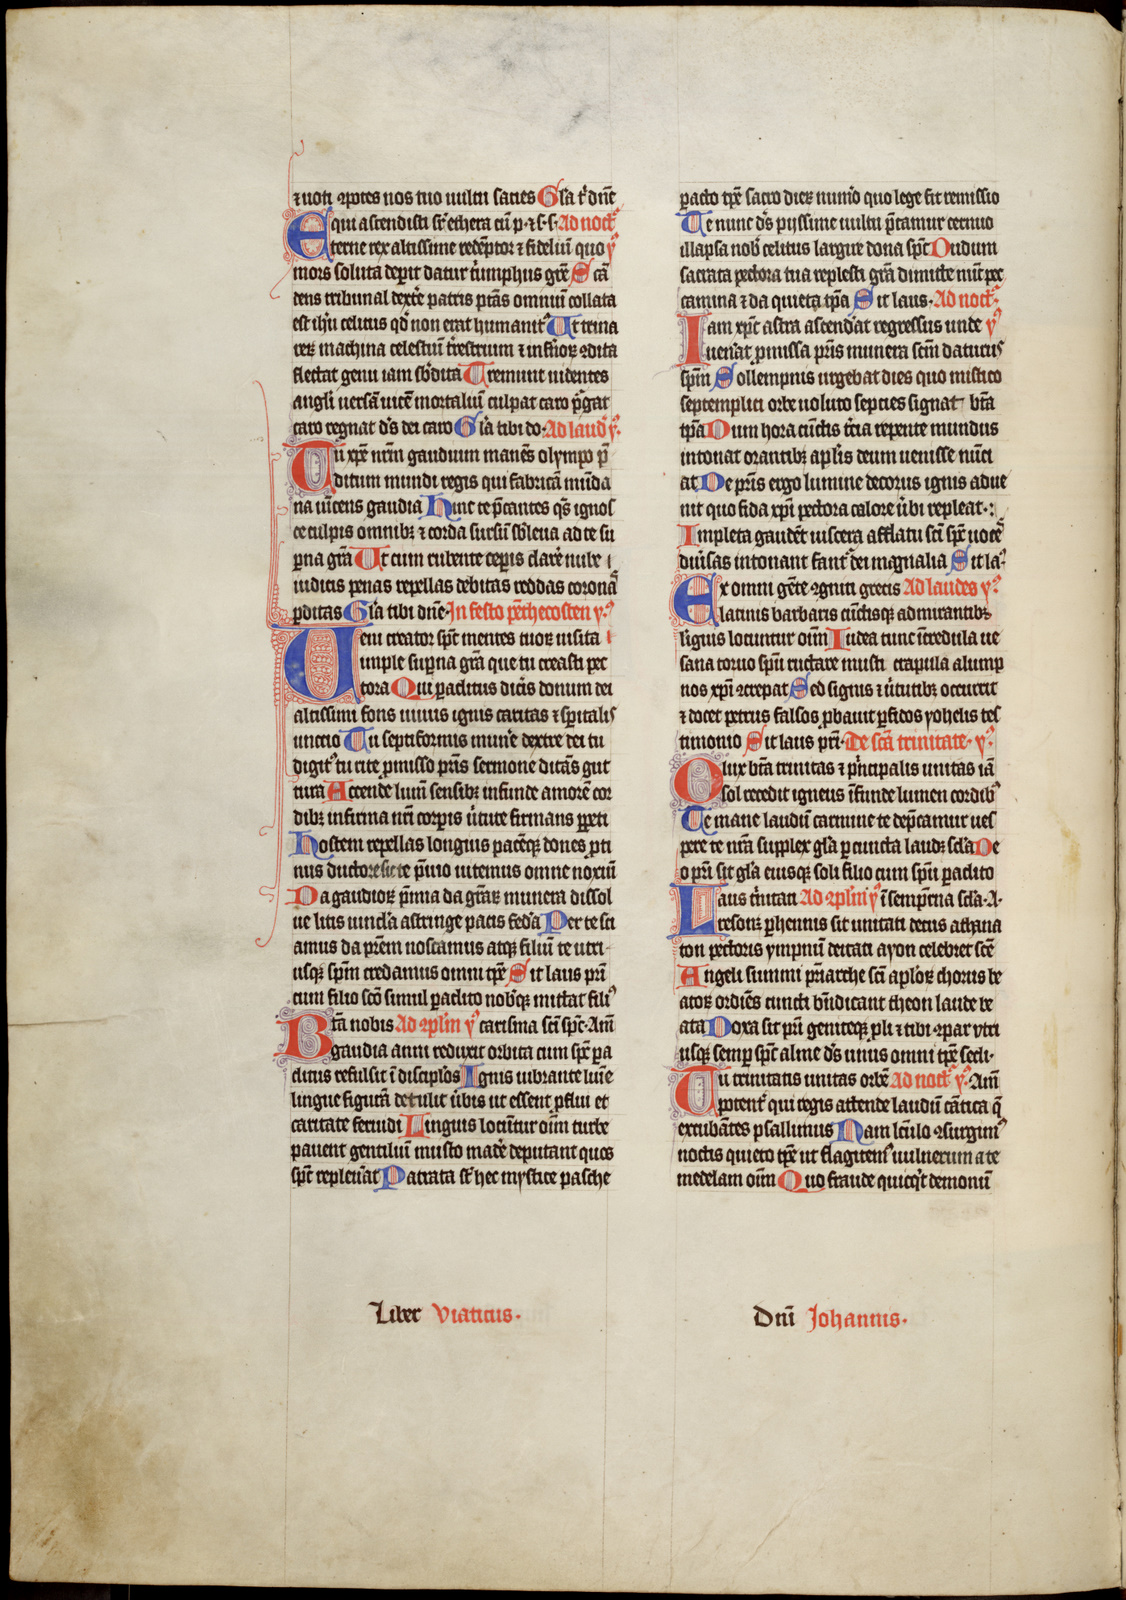 ⁊ uoti ꝯpotes nos tuo uultu sacies Gla t' dn̄e
qui ascendisti sr̄ ethera cū p· ⁊ s· s· Ad noct᷑
Eterne rex altissime redēptor ⁊ fideliū quo y᷑
mors soluta deꝑit datur t'umphus grē Scā
dens tribunal dextre patris ptās omniū collata
est ihu celitus qd' non erat humanit᷑ Ut trina
reꝝ machina celestiū t'restrium ⁊ inferioꝝ ꝯdita
flectat genu iam sb'dita Tremunt uidentes
angli uersā uicē mortaliū culpat caro p'gat
caro regnat ds̄ dei caro Gla tibi do· Ad laud' y᷑
Tu xp̄e nr̄m gaudium manēs olympo p̄
ditum mundi regis qui fabricā mūda
na uīcens gaudia Hinc te p̄cantes qs̄ ignos
ce culpis omnibꝫ ⁊ corda sursū sb'leua ad te su
ꝑna grā Ut cum rubente ceꝑis clare nube i
iudicis penas repellas debitas reddas coronā
ꝑditas Gla tibi dn̄e· In festo pēthecosten y᷑
Ueni creator spc̄ mentes tuoꝝ uisita
imple suꝑna grā que tu creasti pec
tora Qui ꝑaclitus diceris donum dei
altissimi fons uiuus ignis caritas ⁊ sp̄italis
unctio Tu septiformis mun'e dextre dei tu
digit᷑ tu rite ꝓmisso pr̄is sermone ditās gut
tura Accende lum̄ sensibꝫ infunde amorē cor
dibꝫ infirma nr̄i corꝑis u'tute firmans ꝑpeti
Hostem repellas longius pacēqꝫ dones ꝓti
nus ductore sic te p̄uio uitemus omne noxiū
Da gaudioꝝ p̄mia da graꝝ munera dissol
ue litis uincla astringe pacis fed'a Per te sci
amus da pr̄em noscamus atqꝫ filiū te utri
usqꝫ spm̄ credamus omni tꝑe Sit laus pri
cum filio scō simul ꝑaclito nob'qꝫ mittat fili᷑
Bta nobis Ad ꝯplin y᷑ carisma sci spc̄· Am̄
gaudia anni reduxit orbita cum spc̄ ꝑa
clitus refulsit ī discip'los Ignis uibrante luīe
lingue figurā detulit u'bis ut essent ꝓflui et
caritate feruidi Linguis locūtur oīm turbe
pauent gentiliū musto made deputant quos
spc̄ repleu'at Patrata st̄ hec mystice pasche
ꝑacto tꝑe sacro dieꝝ num'o quo lege fit remissio
Te nunc ds̄ pyssime uultu p̄camur cernuo
illapsa nob' celitus largire dona spc̄ Dudum
sacrata pectora tua replesti grā dimitte nūc pec
camina ⁊ da quieta tꝑa Sit laus· Ad noct᷑
Iam xpc̄ astra ascend'at regressus unde y᷑
uen'at ꝓmissa pr̄is munera scm̄ daturus
spm̄ Sollempnis urgebat dies quo mistico
septemplici orbe uoluto septies signat bta
tꝑa Dum hora cūctis t'cia repente mundus
intonat orantibꝫ aplis deum uenisse nūci
at De pr̄is ergo lumine decorus ignis adue
nit quo fida xpi pectora calore u'bi repleat·
Impleta gaudēt uiscera afflatu sci spc̄ uocē
diu'sas intonant fant' dei magnalia Sit la᷑
Ex omni gēte ꝯgniti grecis Ad laudes y᷑
latinis barbaris cūctisqꝫ admirantibꝫ
ligwis locuntur oīm Iudea tunc īcredula ue
sana toruo spū ructare musti crapula alump
nos xpi ꝯcrepat Sed signis ⁊ u'tutibꝫ occurrit
⁊ docet petrus falsos ꝓbauit ꝑfidos yohelis tes
timonio Sit laus pri· De scā trinitate· y᷑
O lux bta trinitas ⁊ p'ncipalis unitas iā
sol recedit igneus īfunde lumen cordib᷑
Te mane laudū carmine te dep̄camur ues
ꝑe te nr̄a supplex gla ꝑ cuncta laudꝫ scla De
o pri sit gla eiusqꝫ soli filio cum spū ꝑaclito
Laus t'nitati Ad ꝯplin y᷑ ī sempit'na scla· A·
resonꝫ ꝑhennis sit unitati decus athana
ton pectoris ympnū deitati ayon celebret scē
Angeli summi pr̄iarche sci aploꝝ chorus be
atoꝝ ordiēs cuncti bn̄dicant theon laude be
ata Doxa sit pri genitoqꝫ ꝓli ⁊ tibi ꝯpar vtri
usqꝫ semꝑ spc̄ alme ds̄ unus omni tꝑe secli·
Tu trinitatis unitas orbē Ad noct᷑ y᷑· Am̄
potent᷑ qui regis attende laudū cātica q̄
excubātes psallimus Nam lc̄ulo ꝯsurgim᷑
noctis quieto tꝑe ut flagitem᷑ uulnerum a te
medelam oīm Quo fraude quicq't demonū
Liber Viaticus·
Dn̄i Johannis·